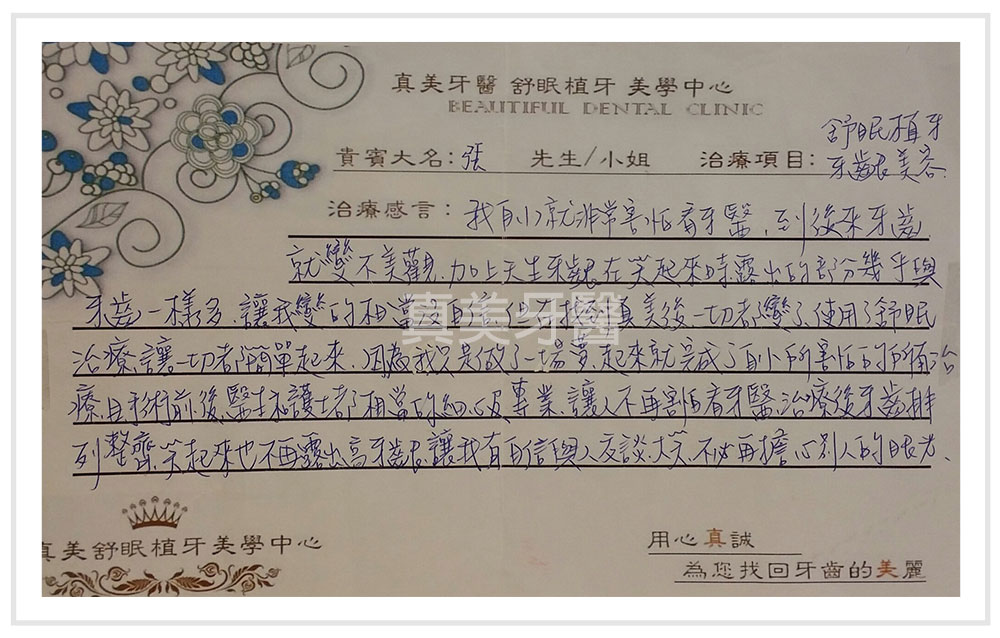 真美牙醫 舒眠植牙 美學中心
BEAUTIFUL DENTAL CLINIC
舒眠植牙
貴賓大名:張 先生/小姐 治療項目: 牙齦美容.
治療感言: 我自小就非常害怕看牙醫、到後來牙齒
就變不美觀.加上天生牙齦在笑起來時露出的部分幾乎與
牙齒一樣多、讓我變的相當沒自信、但在找尋真美後、一切都變了、使用了舒眠
治療、讓一切都簡單起來、因為我只是做了一場夢、起來就完成了自小所害怕的所有治
療、且手術前、後、醫生和護士都相當的細心及專業、讓人不再害怕看牙醫、治療後牙齒排
列整齊、笑起來也不再露出高牙齦、讓我有自信與人交談、大笑、不必再擔心別人的眼光、
真美牙醫
真美舒眠植牙美學中心
用心真誠
為您找回牙齒的美麗